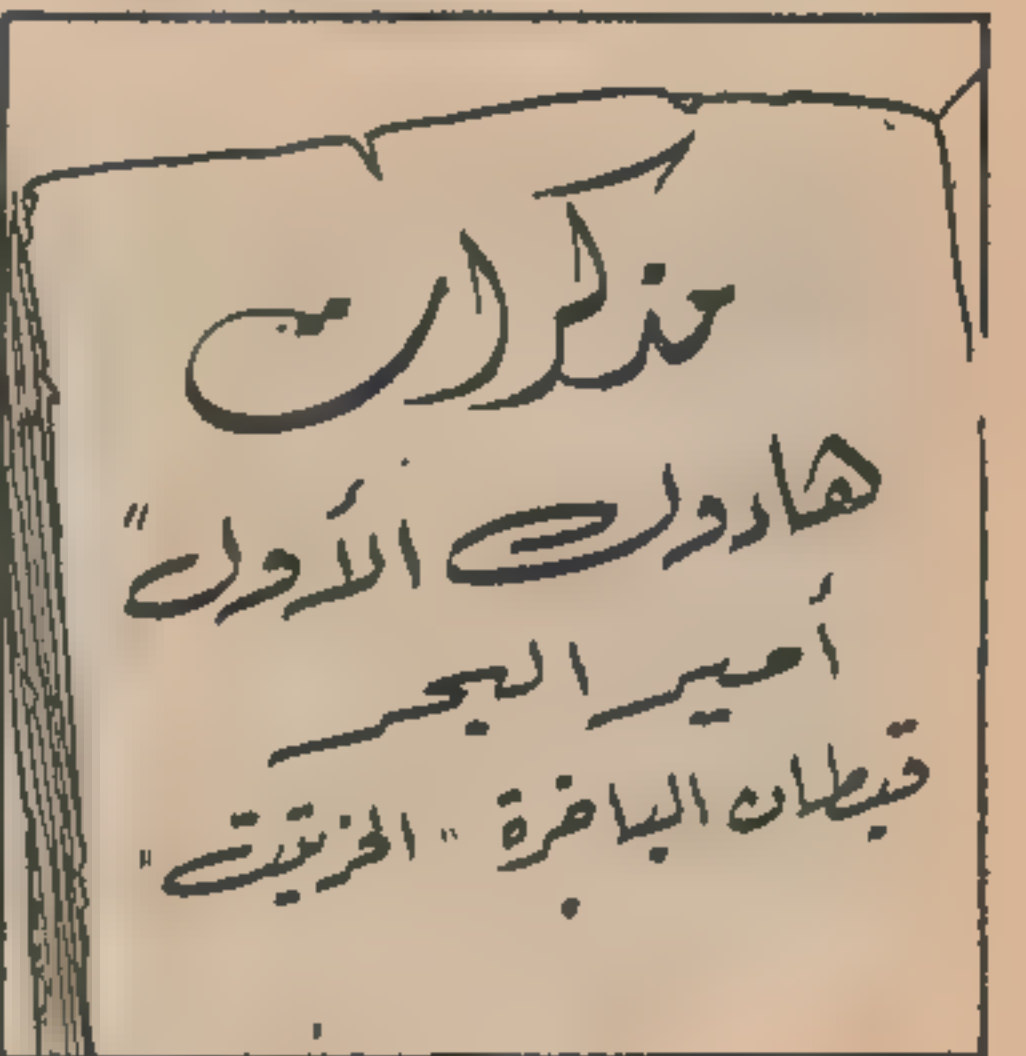 مذكرات
هادوك الأول "
أمير البحر
قبطان الباخرة "الخرتيت"